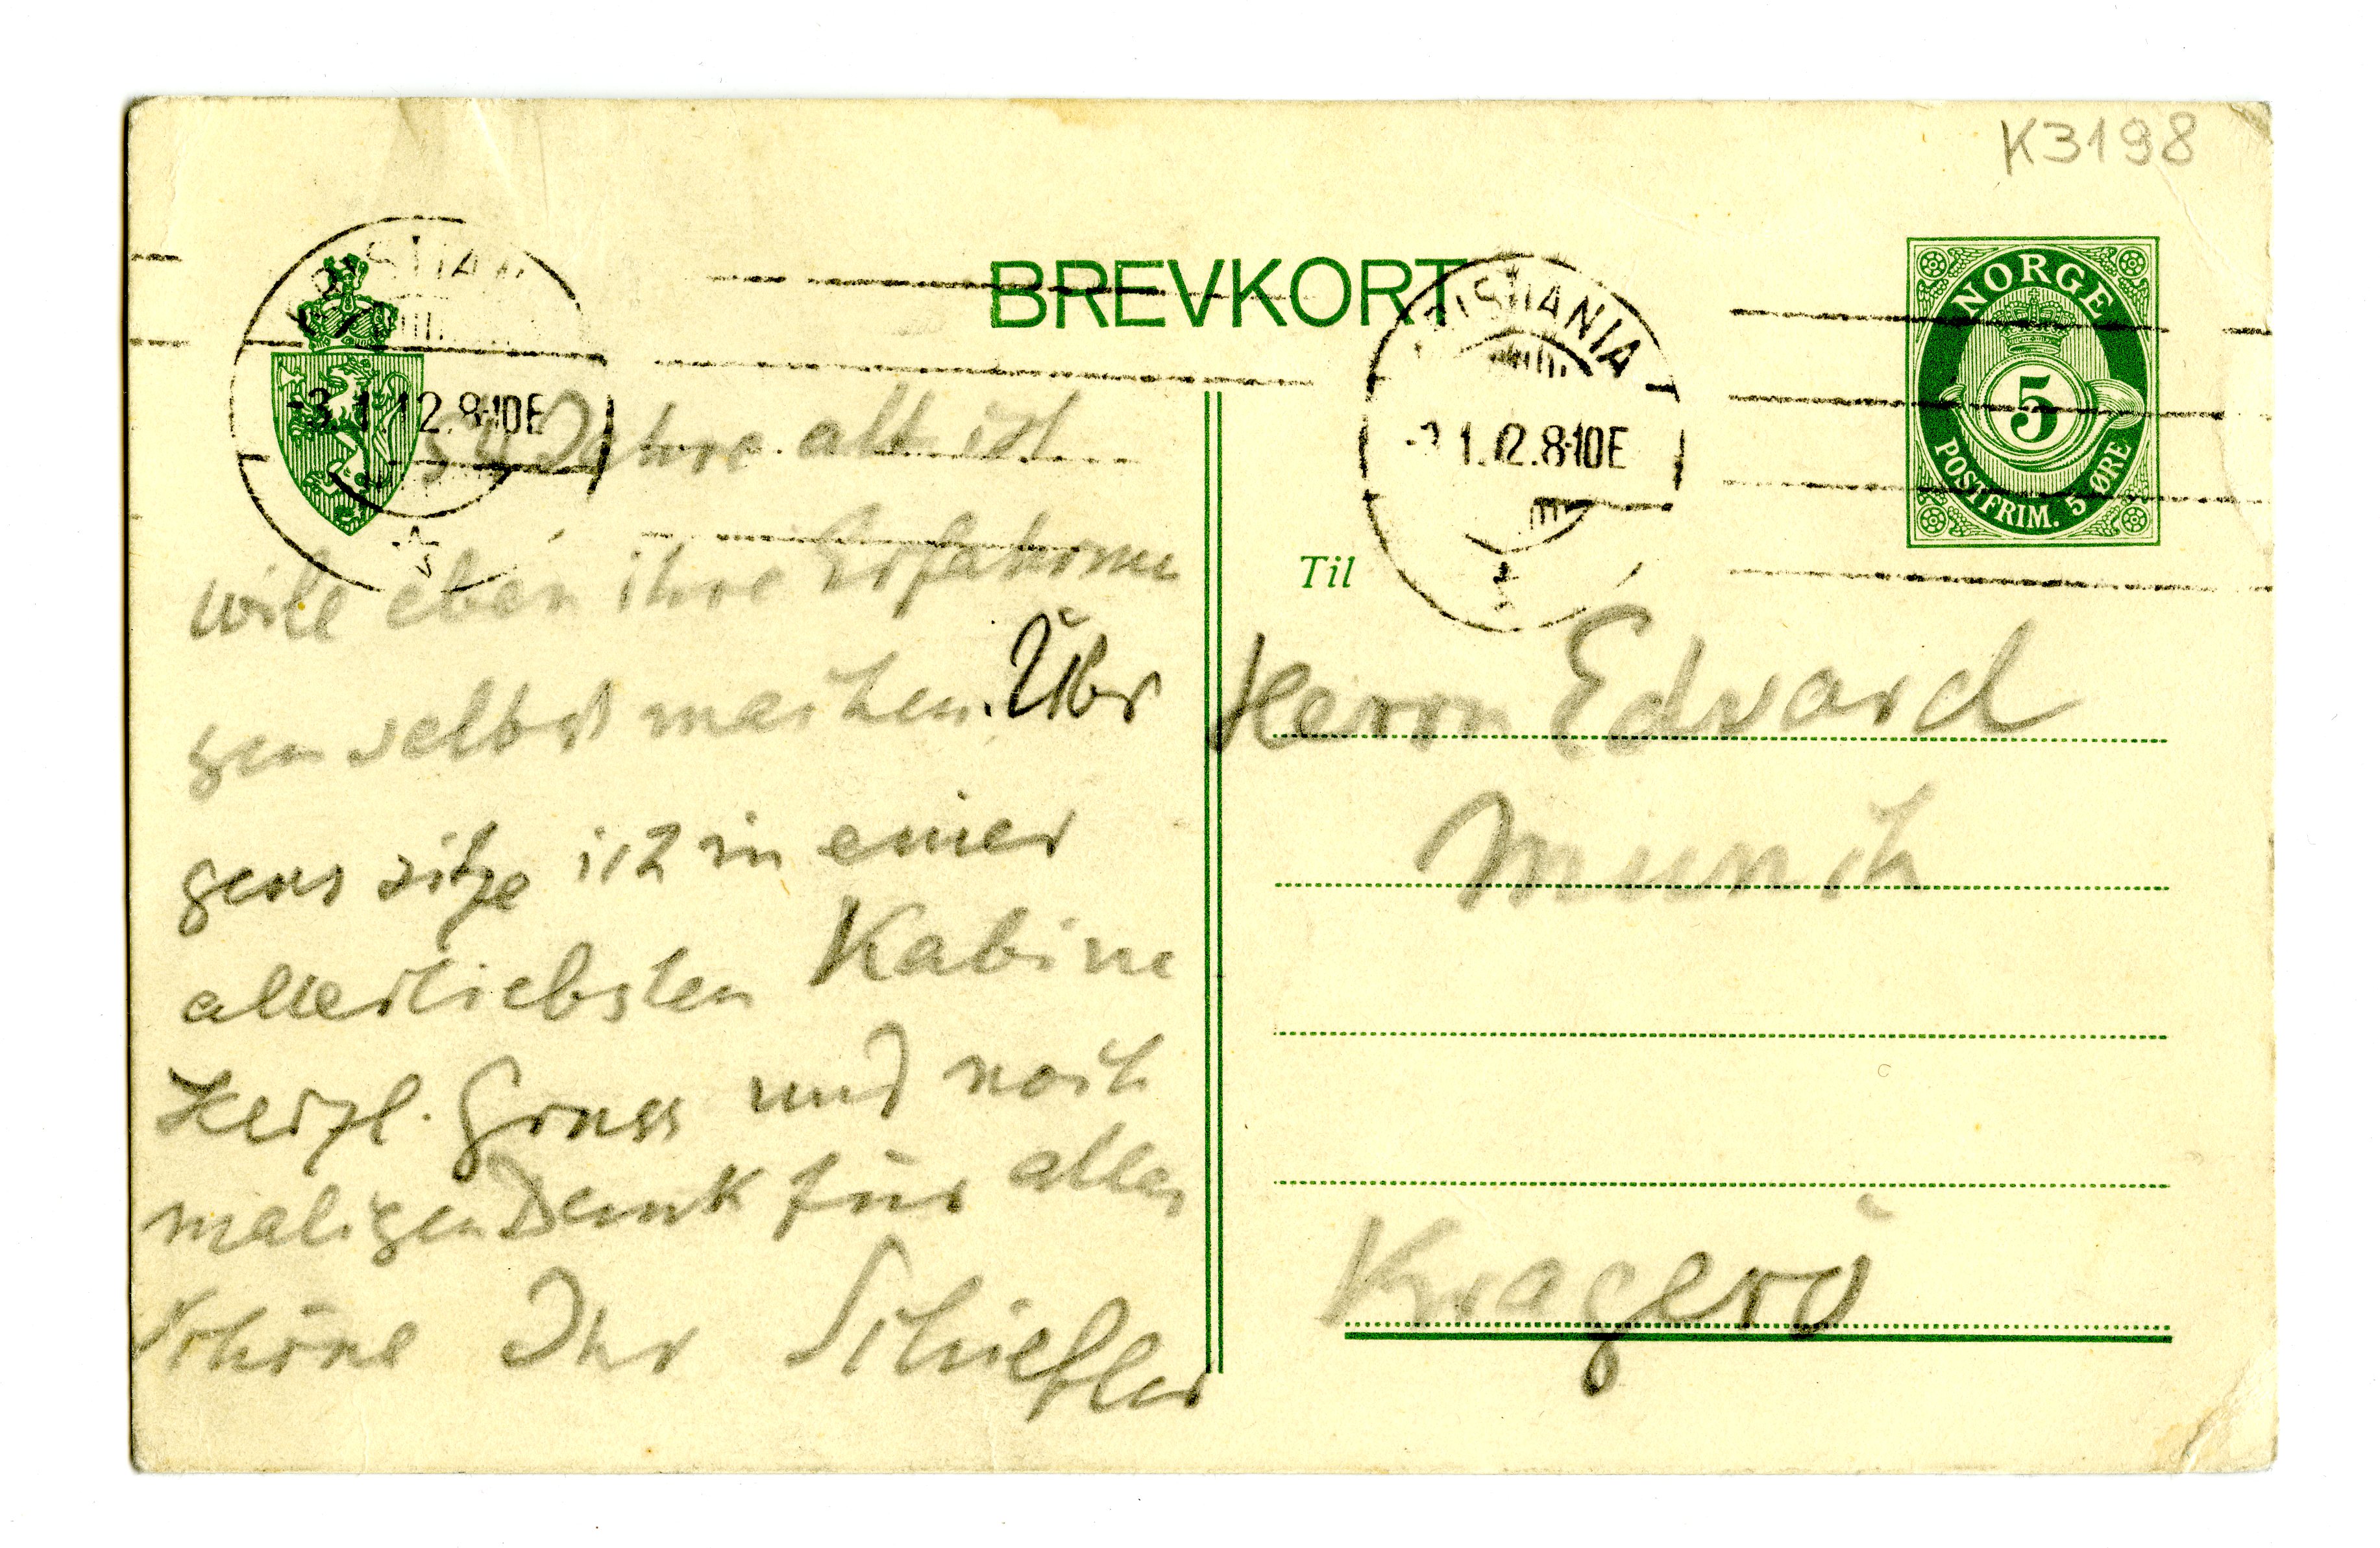 K3198
BREVKORT
NORGE
5
POSTFRIM. 5 ØRE
KRISTIANIA
-3.1.12.8-10E
ISTIANIA
1.12.8-10E
54 Jahre alt ist
will eben ihre Erfahrun
gen selbst machen. Übr
gens sitze ich in einer
allerliebsten Kabine
Herzl. Gruss und noch
maligen Dank für alles
Schöne Ihr Schiefler
Til
Herrn Edvard
Munch
Kragerö